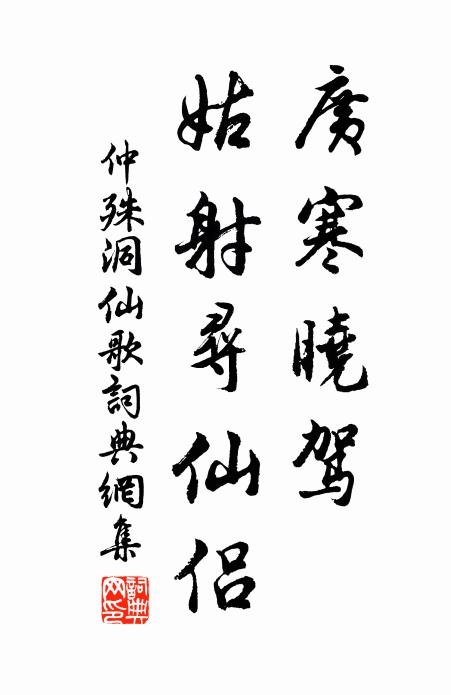 廣寒曉駕
姑射尋仙侣
仲殊洞仙歌詞典網集